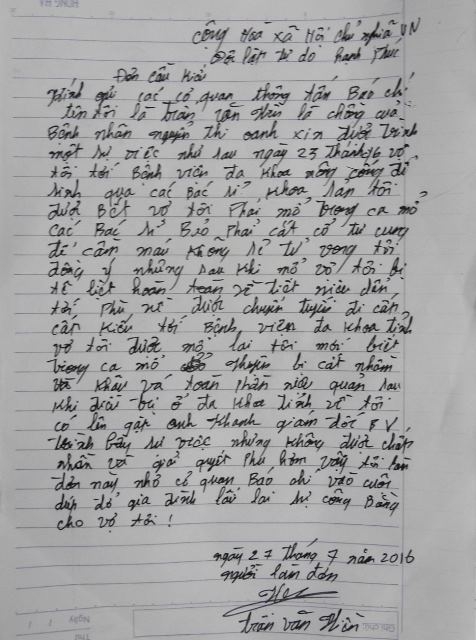 cộng Hoà xã Hội chủ nghĩa VN
Độc lập tự do hạnh Phúc
Đơn cầu Kiểu
Kính gửi các cơ quan thông tấn Báo chí
tên tôi là trần văn Hiền là chồng của
Bệnh nhân nguyễn thị oanh xin được trình
một sự việc như sau ngày 23 tháng 6 vợ
tôi tới Bệnh viện đa khoa nông cống để
sinh qua các Bác sĩ khoa sản tôi
được Biết vợ tôi Phải mổ trong ca mổ
các Bác sĩ Bảo Phải cắt cổ tử cung
để cầm máu không sẽ tử vong tôi
đồng ý nhưng sau khi mổ vợ tôi bị
tê liệt hoàn toàn về tiết niệu dẫn
tới Phù nề được chuyển tuyến đi cấp
cấp Kiểu tới Bệnh viện đa khoa tỉnh
vợ tôi được mổ lại tôi mới biết
trong ca mổ thuyền bị cắt nhầm
và Khâu vá toàn Phần niệu quản sau
khi điều trị ở đa khoa tỉnh về tôi
có lên gặp anh Khanh giám đốc BV
trình bầy sự việc nhưng không được chấp
nhận và giải quyết Phù hợp vậy tôi làm
đơn này nhờ cơ quan Báo chí vào cuộc
giúp đỡ gia đình lấy lại sự công Bằng
cho vợ tôi !
ngày 27 tháng 7 năm 2016
người làm đơn
trần văn Hiền